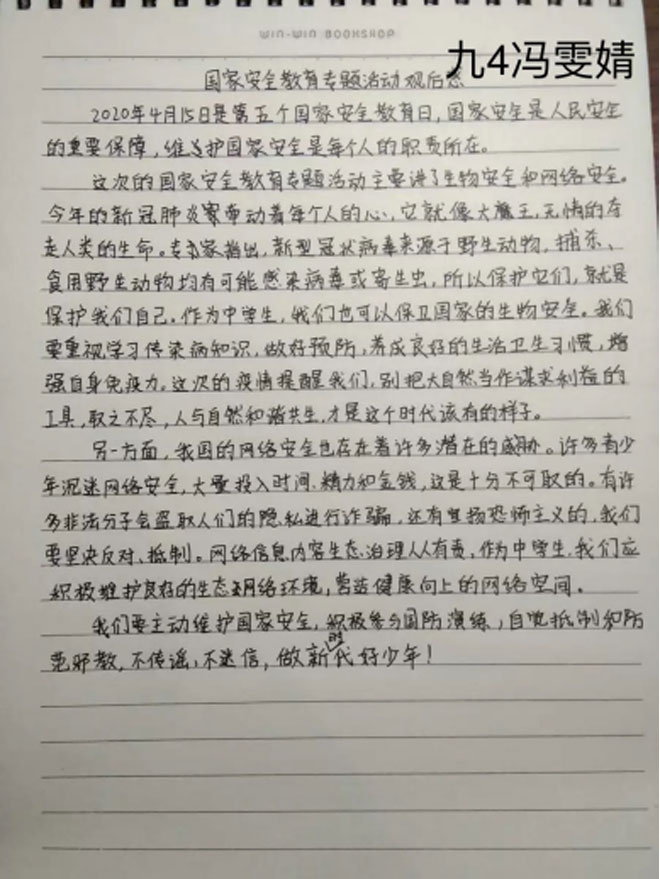 WIN-WIN BOOKSHOP
九4冯雯婧
国家安全教育专题活动观后感
2020年4月15日是第五个国家安全教育日,国家安全是人民安全
的重要保障,维护国家安全是每个人的职责所在。
这次的国家安全教育专题活动主要讲了生物安全和网络安全。
今年的新冠肺炎牵动着每个人的心,它就像大魔王,无情的夺
走人类的生命。专家指出,新型冠状病毒来源于野生动物,捕杀、
食用野生动物均有可能感染病毒或寄生虫,所以保护它们,就是
保护我们自己。作为中学生,我们也可以保卫国家的生物安全。我们
要重视学习传染病知识,做好预防,养成良好的生活卫生习惯,增
强自身免疫力。这次的疫情提醒我们,别把大自然当作谋求利益的
工具,取之不尽,人与自然和谐共生,才是这个时代该有的样子。
另一方面,我国的网络安全也存在着许多潜在的威胁。许多青少
年沉迷网络安全,大量投入时间、精力和金钱,这是十分不可取的。有许
多非法分子会盗取人们的隐私进行诈骗,还有宣扬恐怖主义的,我们
要坚决反对、抵制。网络信息内容生态治理人人有责,作为中学生,我们应
积极维护良好的生态网络环境,营造健康向上的网络空间。
我们要主动维护国家安全,积极参与国防演练,自觉抵制和防
范邪教,不传谣,不迷信,做新时代好少年!